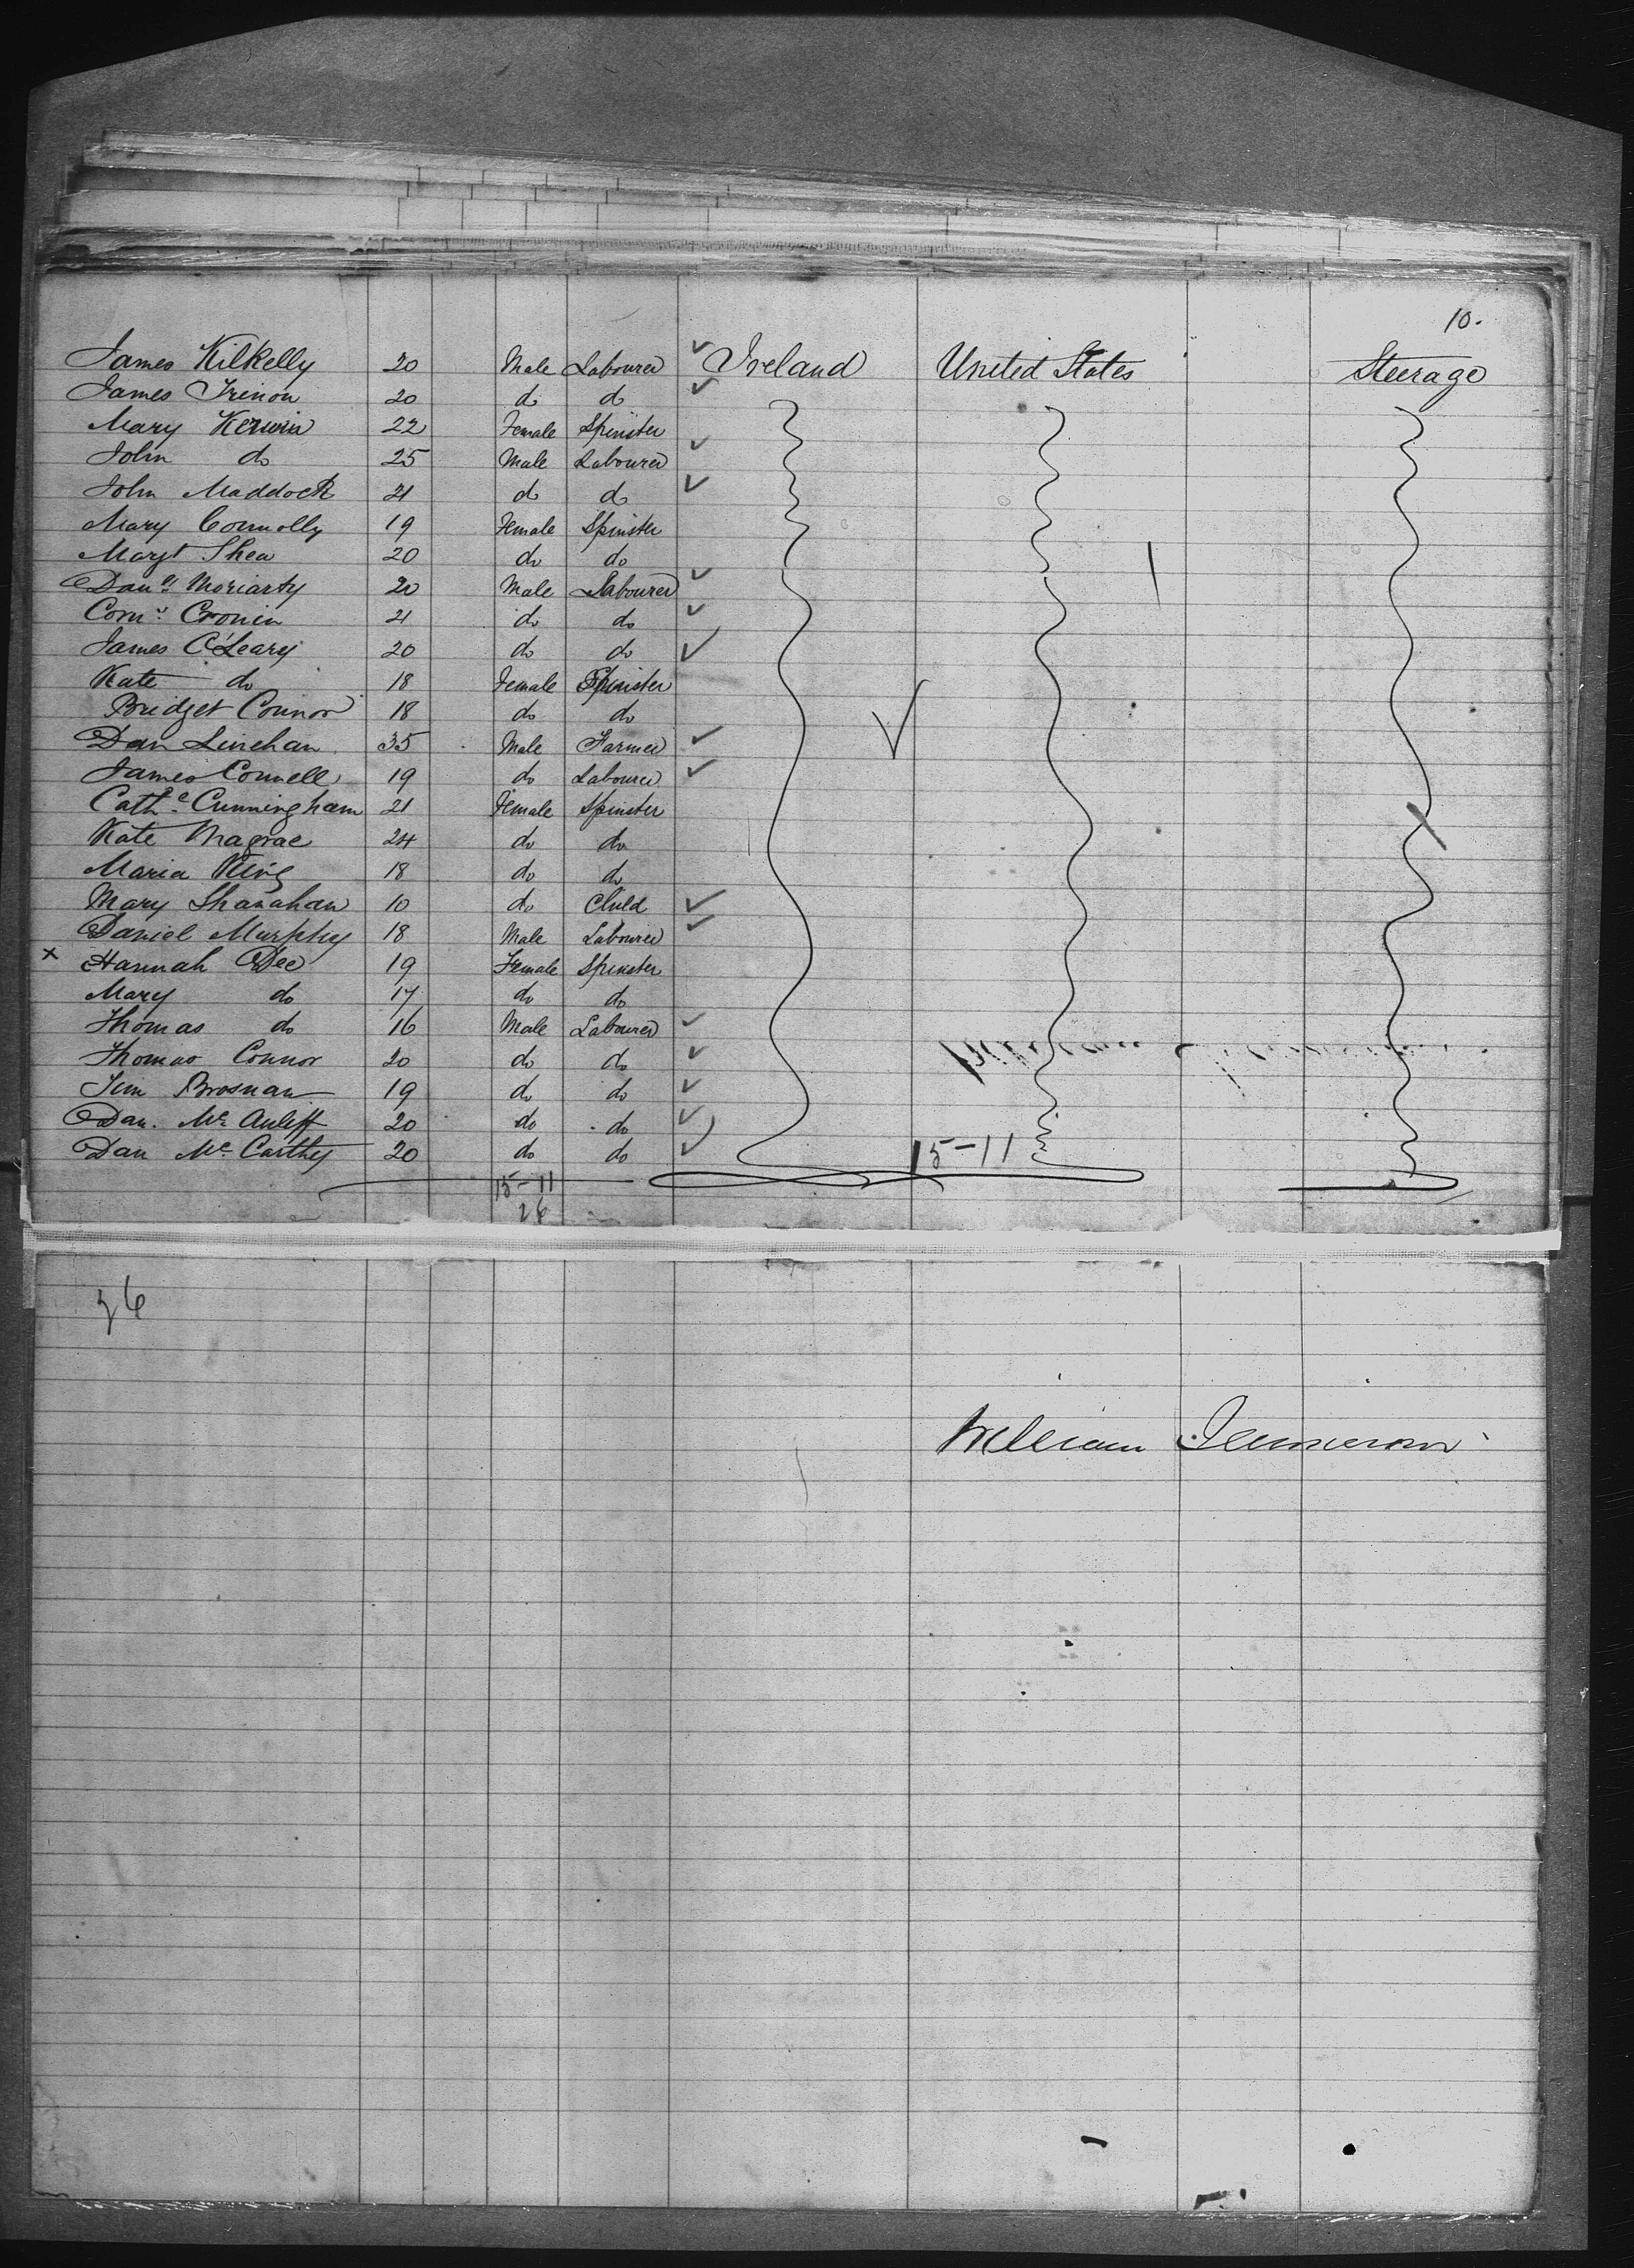 10.
James Kilkelly 20 Male Labourer Ireland United States Steerage
James Trinon 20 do do
Mary Kerwin 22 Female Spinster
John do 25 Male Labourer
John Maddock 21 do do
Mary Connolly 19 Female Spinster
Margt Shea 20 do do
Danl. Moriarty 20 Male Labourer
Corns. Cronin 21 do do
James O'Leary 20 do do
Kate do 18 Female Spinster
Bridget Connor 18 do do
Dan Linehan 35 Male Farmer
James Connell 19 do Labourer
Cathe. Cunningham 21 Female Spinster
Kate Magrae 24 do do
Maria King 18 do do
Mary Shanahan 10 do Child
Daniel Murphy 18 Male Labourer
x Hannah Dee 19 Female Spinster
Mary do 17 do do
Thomas do 16 Male Labourer
Thomas Connor 20 do do
Jim Brosnan 19 do do
Dan. Mc Auliff 20 do do
Dan Mc Carthy 20 do do 15-11
15-11
26
26
William